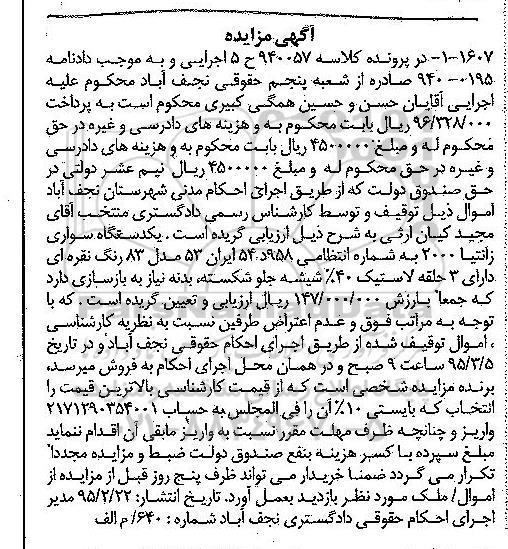 آگهی مزایده
۱-۱۶۰۷- در پرونده کلاسه ۹۴۰۰۵۷ ح ۵ اجرایی و به موجب دادنامه
۰۱۹۵-۹۴۰ صادره از شعبه پنجم حقوقی نجف آباد محکوم علیه
اجرایی آقایان حسن و حسین همگی کبیری محکوم است به پرداخت
۹۶/۳۲۸/۰۰۰ ریال بابت محکوم به و هزینه های دادرسی و غیره در حق
محکوم له و مبلغ ۴۵۰۰۰۰۰ ریال بابت محکوم به و هزینه های دادرسی
و غیره در حق محکوم له و مبلغ ۴۵۰۰۰۰۰ ریال نیم عشر دولتی در
حق صندوق دولت که از طریق اجرای احکام مدنی شهرستان نجف آباد
اموال ذیل توقیف و توسط کارشناس رسمی دادگستری منتخب آقای
مجید کیان ارثی به شرح ذیل ارزیابی گریده است . یکدستگاه سواری
زانتیا ۲۰۰۰ به شماره انتظامی ۹۵۸د۵۴ ایران ۵۳ مدل ۸۳ رنگ نقره ای
دارای ۳ حلقه لاستیک ۴۰٪ شیشه جلو شکسته، بدنه نیاز به بازسازی دارد
که جمعاً بارزش ۱۴۷/۰۰۰/۰۰۰ ریال ارزیابی و تعیین گریده است . که با
توجه به مراتب فوق و عدم اعتراض طرفین نسبت به نظریه کارشناسی
، اموال توقیف شده از طریق اجرای احکام حقوقی نجف آباد و در تاریخ
۹۵/۳/۵ ساعت ۹ صبح و در همان محل اجرای احکام به فروش میرسد،
برنده مزایده شخصی است که از قیمت کارشناسی بالاترین قیمت را
انتخاب که بایستی ۱۰٪ آن را فی المجلس به حساب ۲۱۷۱۲۹۰۳۵۴۰۰۱
واریز و چنانچه ظرف مهلت مقرر نسبت به واریز مابقی آن اقدام ننماید
مبلغ سپرده با کسر هزینه بنفع صندوق دولت ضبط و مزایده مجدداً
تکرار می گردد ضمنا خریدار می تواند ظرف پنج روز قبل از مزایده از
اموال/ ملک مورد نظر بازدید بعمل آورد. تاریخ انتشار: ۹۵/۲/۲۲ مدیر
اجرای احکام حقوقی دادگستری نجف آباد شماره : ۶۴۰/ م الف